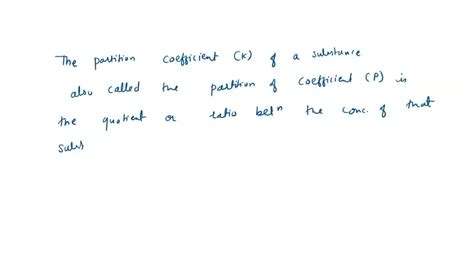 The partition coefficient (K) of a substance
also called the partition of coefficient (P) is
the quotient or ratio betⁿ the conc. of that
subs